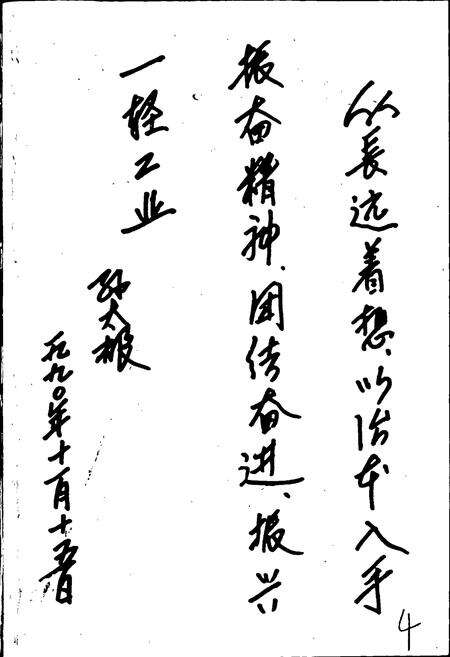 从长远着想、从治本入手
振奋精神、团结奋进、振兴
一轻工业
孙大根
一九九〇年十月十五日
4